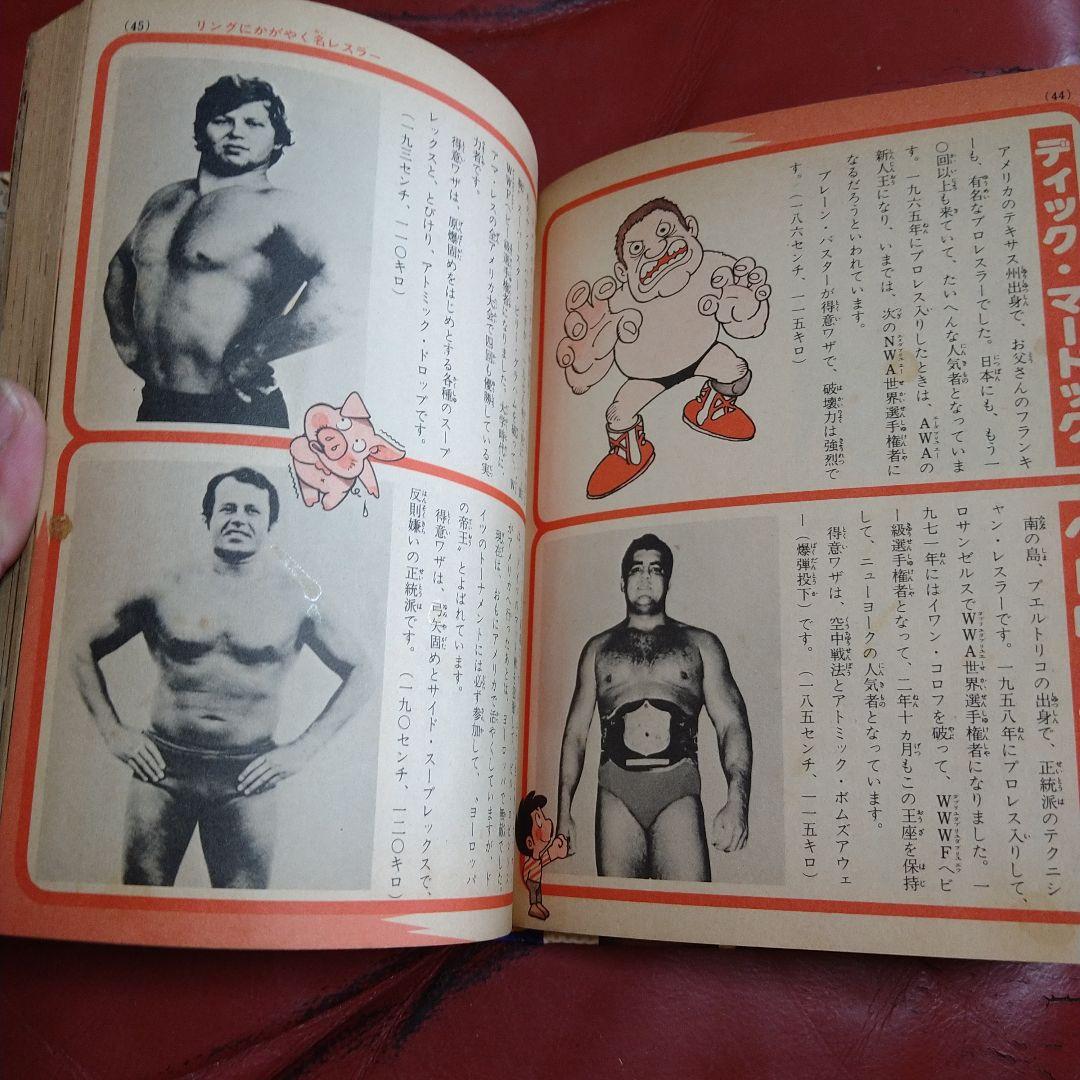 (44)
ディック・マードック
アメリカのテキサス州出身で、お父さんのフランキ
ーも、有名なプロレスラーでした。日本にも、もう一
〇回以上も来ていて、たいへんな人気者となっていま
す。一九六五年にプロレス入りしたときは、AWAの
新人王になり、いまでは、次のNWA世界選手権者に
なるだろうといわれています。
ブレーン・バスターが得意ワザで、破壊力は強烈で
す。(一八六センチ、一一五キロ)
南の島、プエルトリコの出身で、正統派のテクニシ
ャン・レスラーです。一九五八年にプロレス入りして、
ロサンゼルスでWWA世界選手権者になりました。一
九七一年にはイワン・コロフを破って、WWWFヘビ
ー級選手権者となって、二年十カ月もこの王座を保持
して、ニューヨークの人気者となっています。
得意ワザは、空中戦法とアトミック・ボムズアウェ
ー(爆弾投下)です。(一八五センチ、一一五キロ)
(45)
リングにかがやく名レスラー
アマ・レスの全アメリカ大会で四回も優勝している実
力者です。
得意ワザは、原爆固めをはじめとする各種のスープ
レックスと、とびけり、アトミック・ドロップです。
(一九三センチ、一一〇キロ)
現在は、おもにアメリカで活やくしていますが、ド
イツのトーナメントには必ず参加して、“ヨーロッパ
の帝王”とよばれています。
得意ワザは、弓矢固めとサイド・スープレックスで、
反則嫌いの正統派です。(一九〇センチ、一二〇キロ)